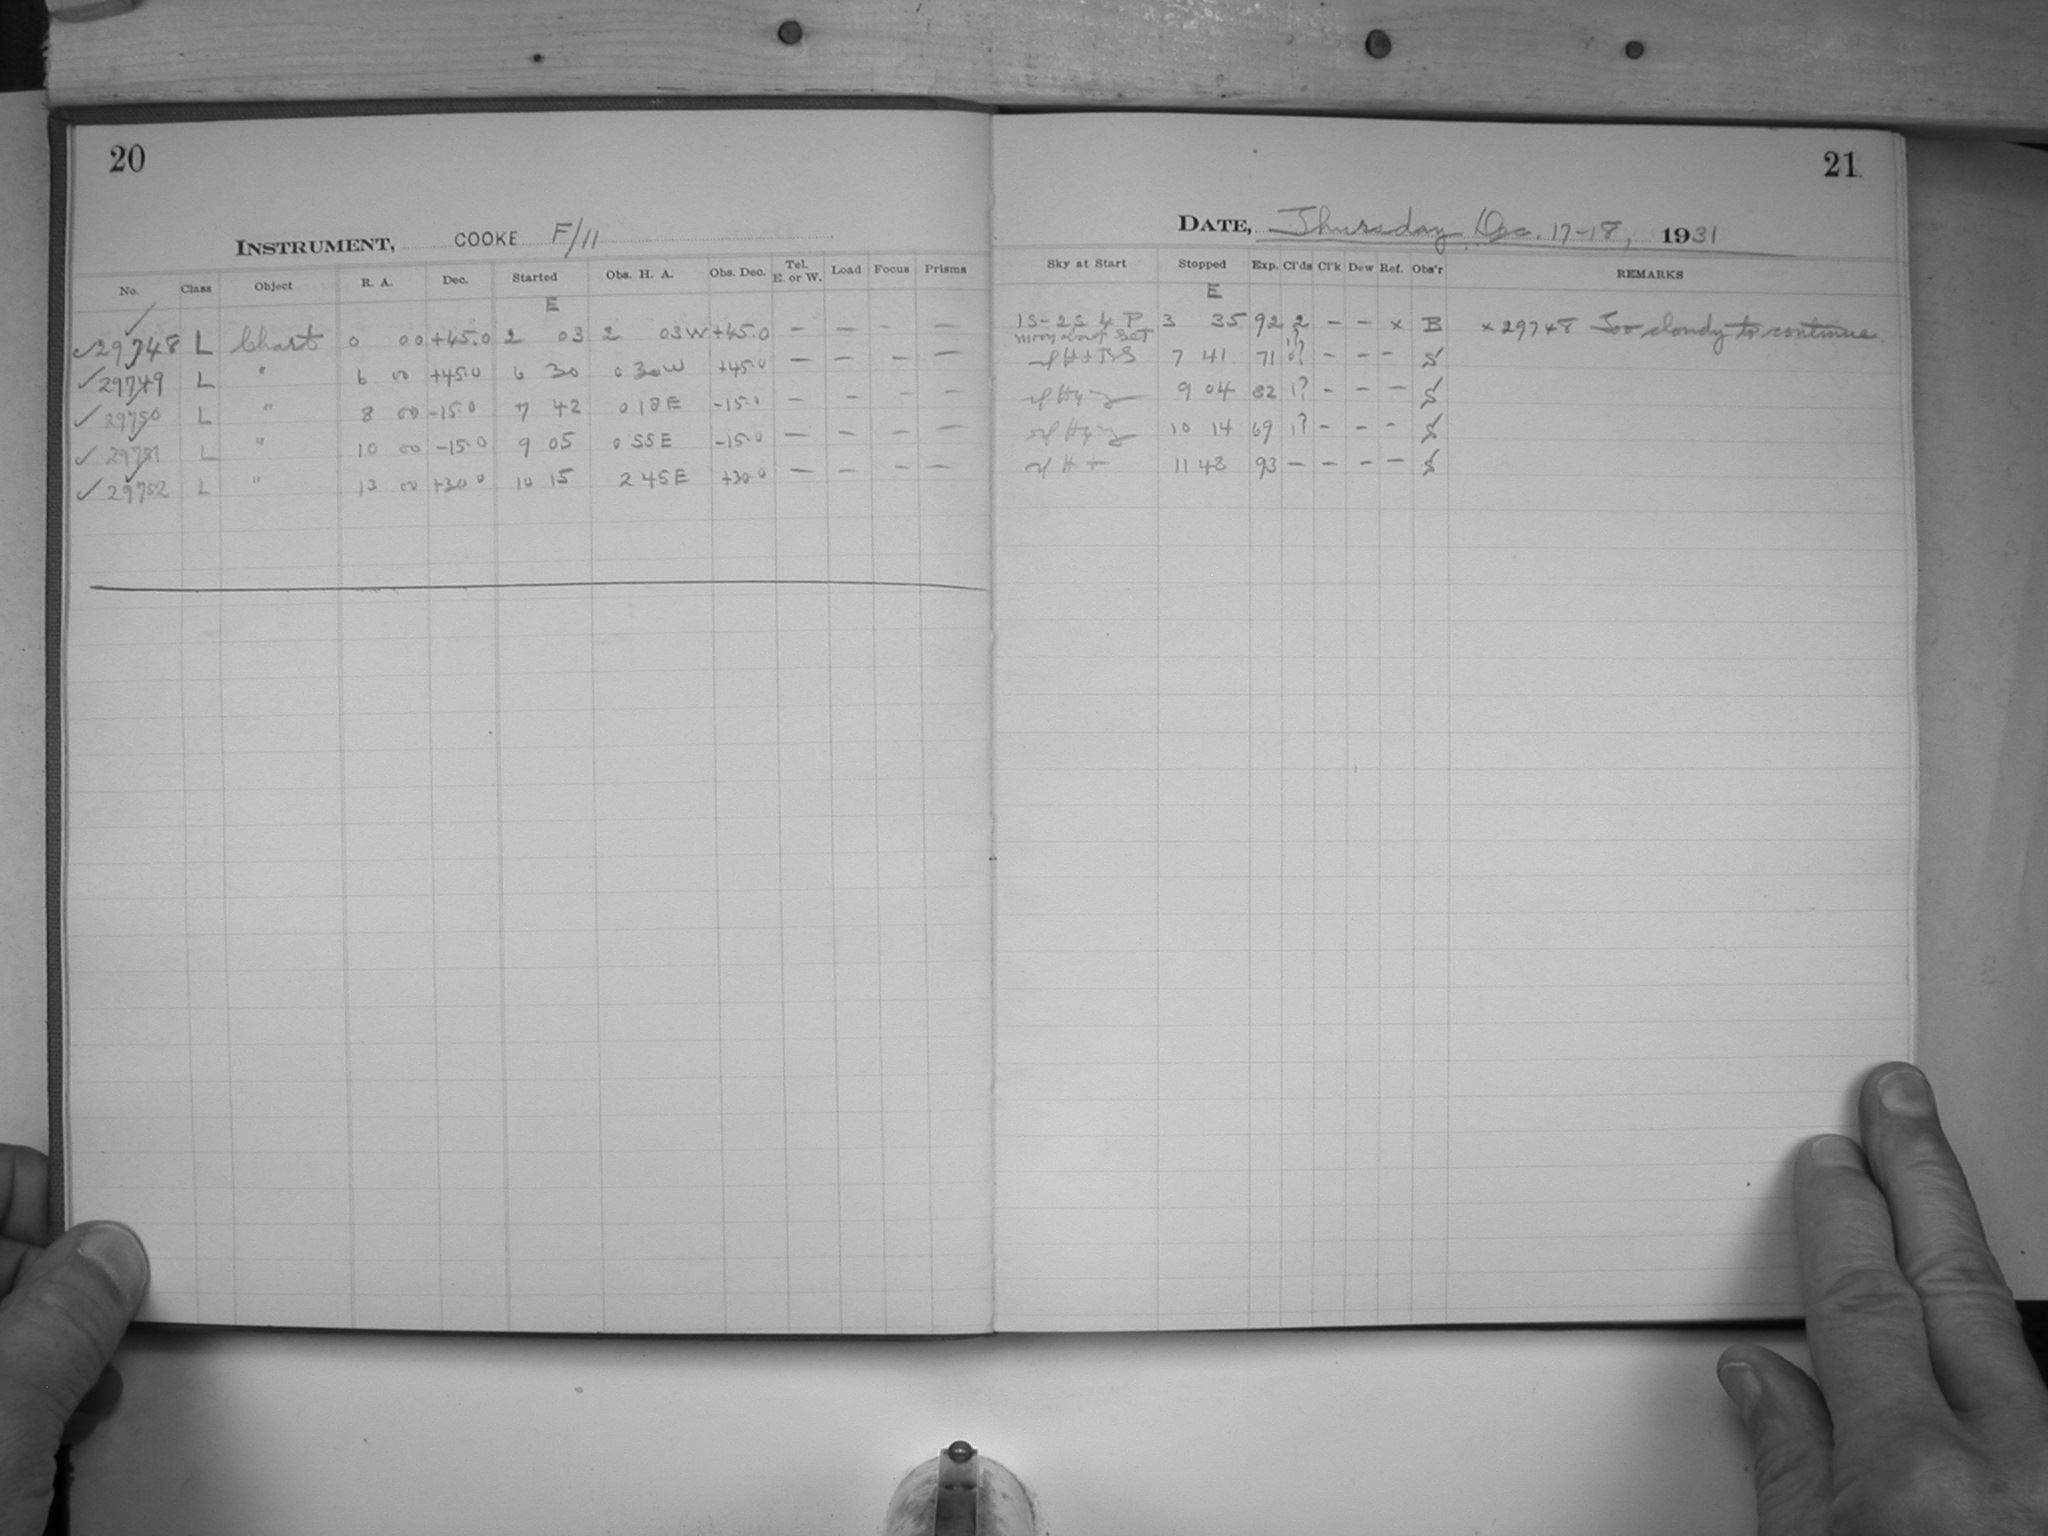 20
INSTRUMENT, COOKE F/11
No. Class Object R. A. Dec. Started Obs. H. A. Obs. Dec. Tel. E. or W. Load Focus Prisms
E
✓29748 L Chart 0 00 +45.0 2 03 2 03W +45.0 — — - —
✓29749 L " 6 00 +45.0 6 30 0 30W +45.0 — — — —
✓29750 L " 8 00 -15.0 7 42 0 18E -15.0 — — - —
✓29751 L " 10 00 -15.0 9 05 0 55E -15.0 — — — —
✓29752 L " 13 00 +30.0 10 15 2 45E +30.0 — — — —
21
DATE, Thursday, Dec. 17-18, 1931
Sky at Start Stopped Exp. Cl'ds Cl'k Dew Ref. Obs'r REMARKS
E
1S-2S 4 P 3 35 92 2 — — x B x 29748 Too cloudy to continue
Moon about set
7 41 71 - - - S
9 04 82 1? - — — S
10 14 69 1? - — - S
11 48 93 — — — — S